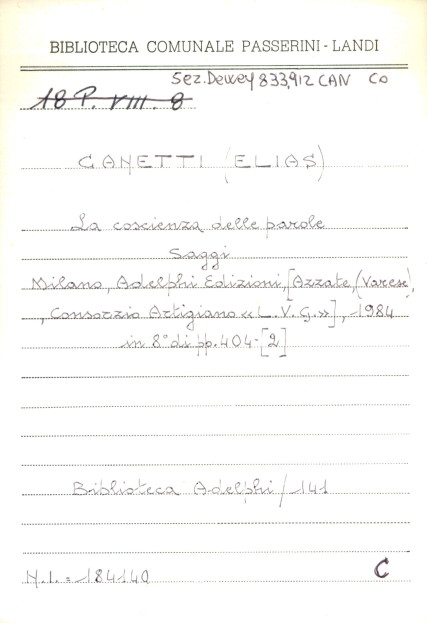 BIBLIOTECA COMUNALE PASSERINI - LANDI
Sez. Dewey 833,912 CAN CO
18 P. VIII. 8
CANETTI (ELIAS)
La coscienza delle parole
Saggi
Milano, Adelphi Edizioni, [Azzate, (Varese),
, Consorzio Artigiano «L. V. G.»], 1984
in 8° di pp. 404-[2]
Biblioteca Adelphi / 141
N.I. = 184140 C